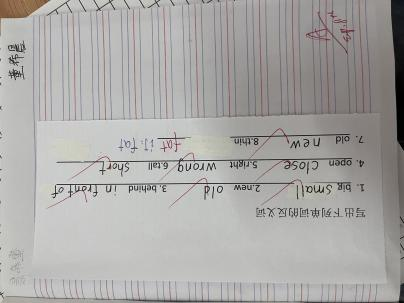 写出下列单词的反义词
1. big small 2.new old 3. behind in front of
4. open close 5.right wrong 6.tall short
7. old new 8.thin fat 订: fat